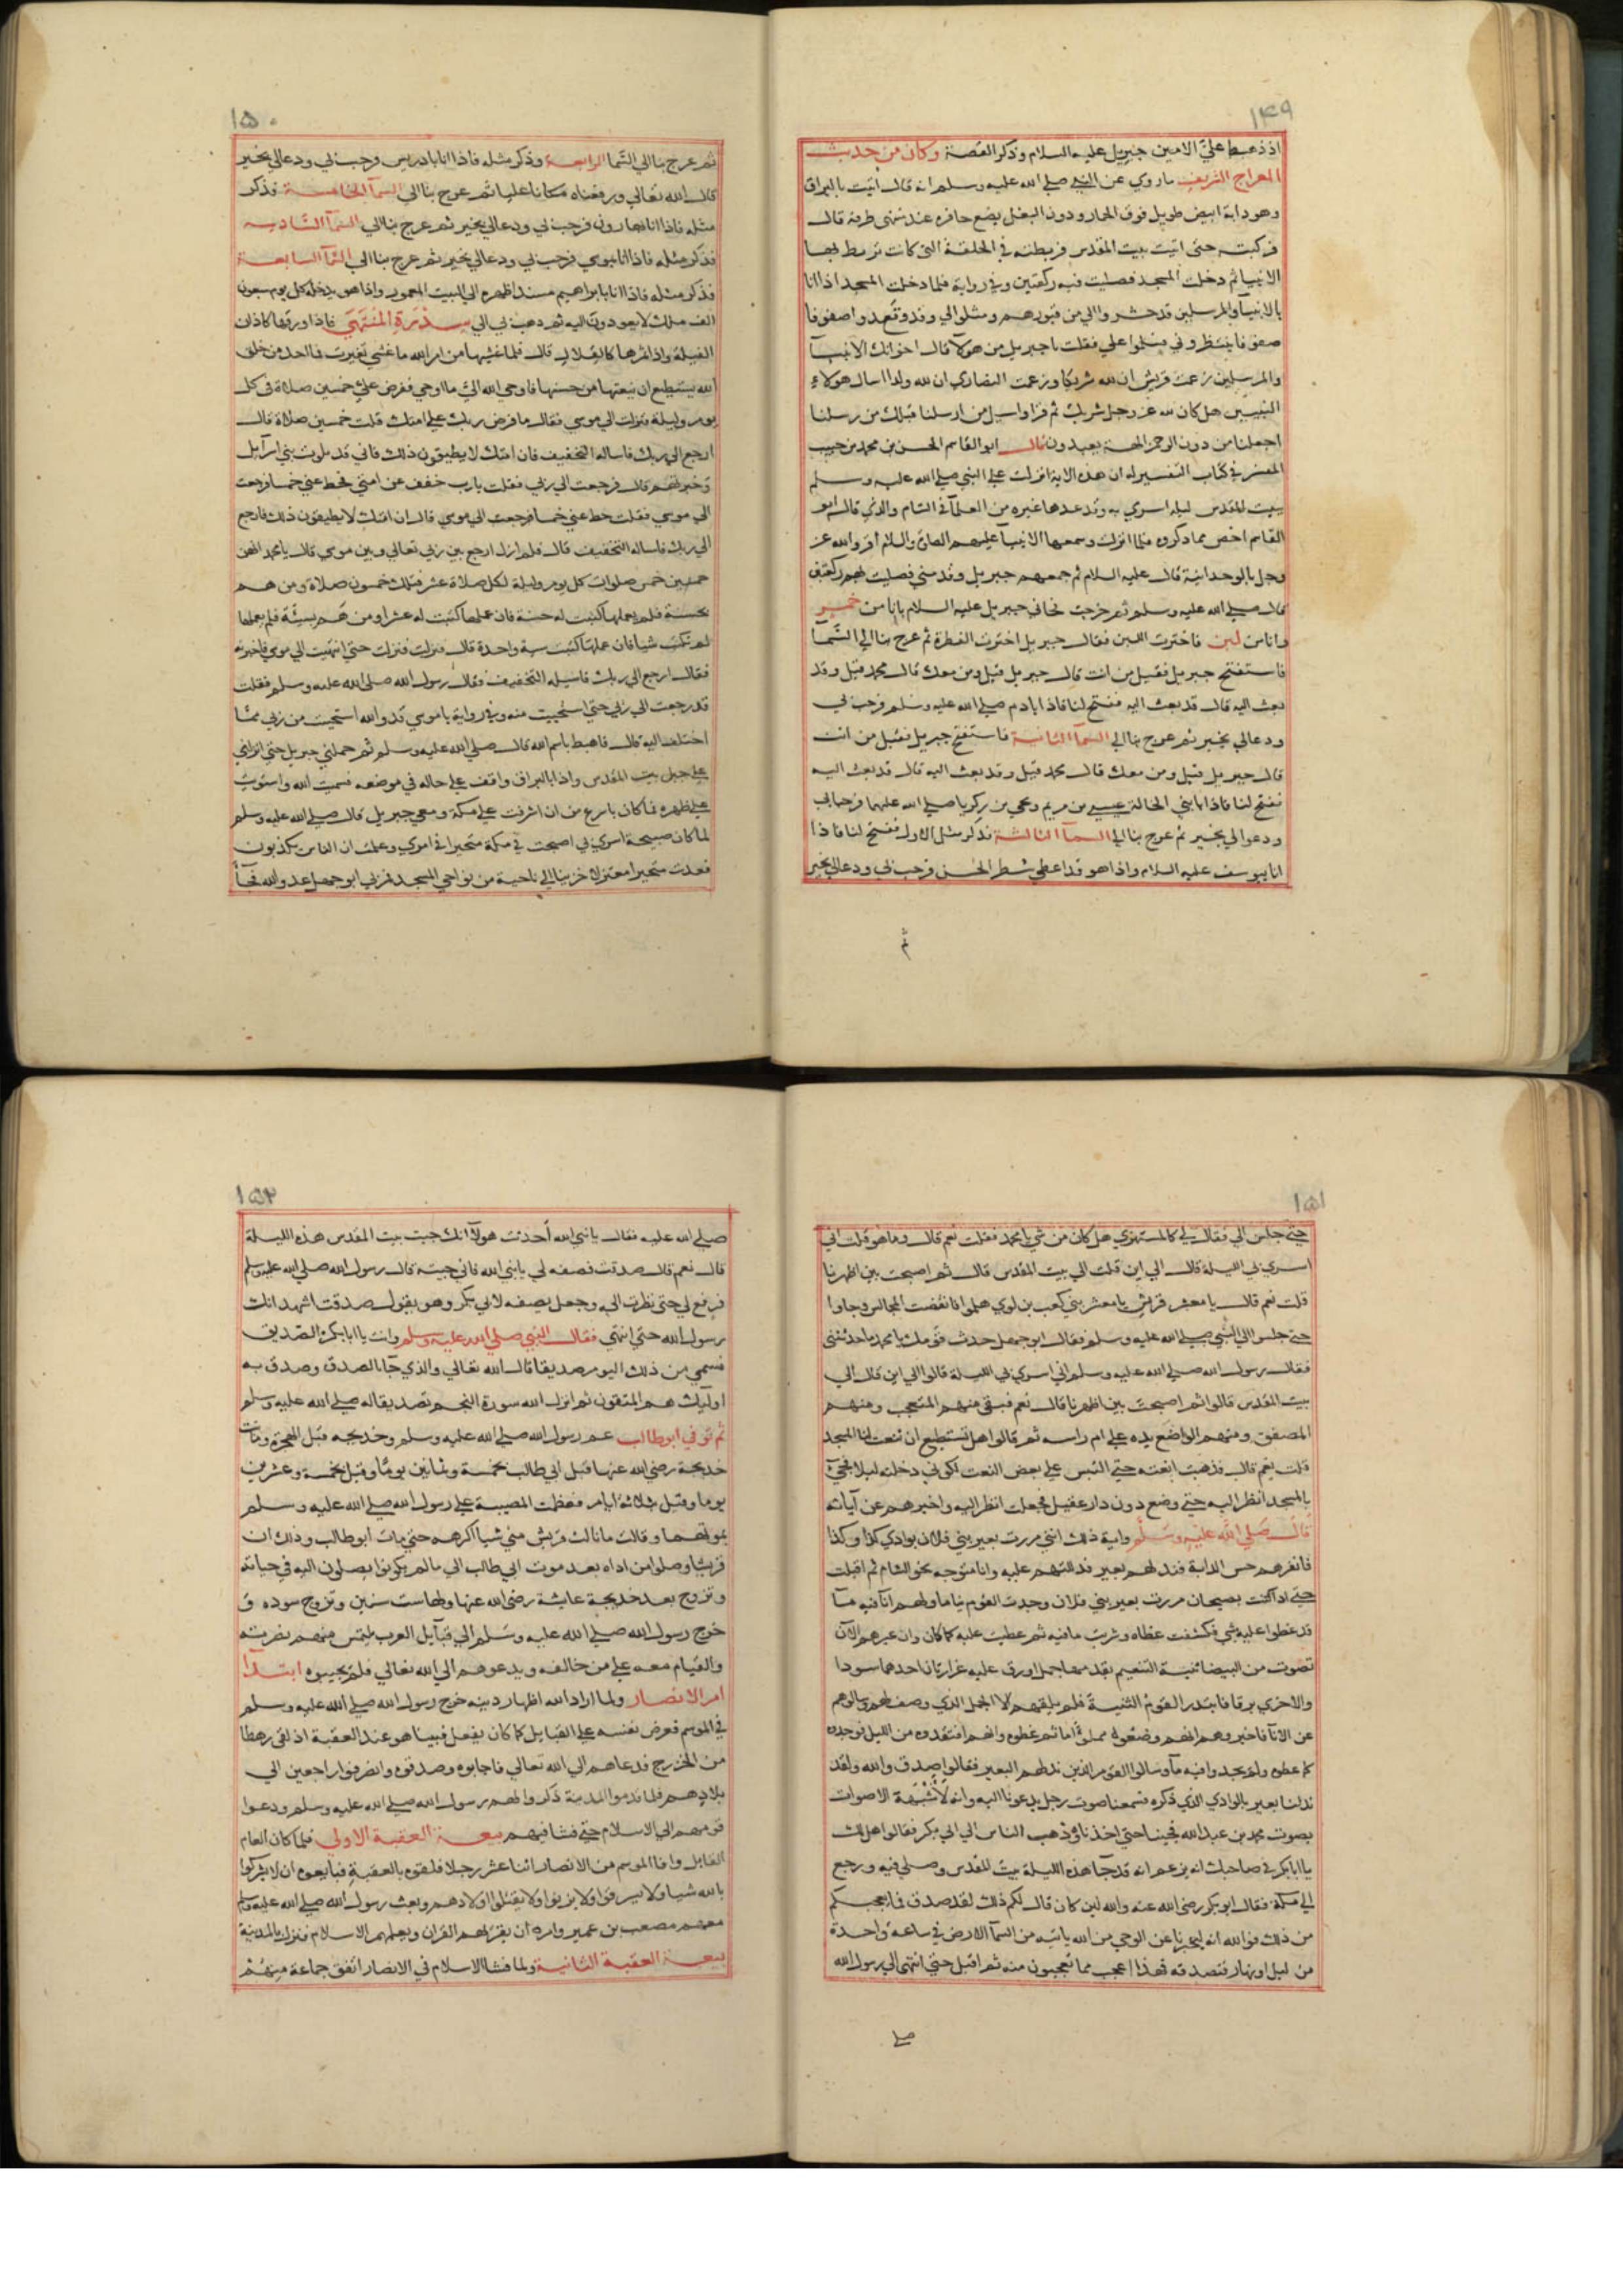 ١٤٩
اذ ذهبط علي الامين جبريل عليه السلام وذكر القصة وكان من حديث
المعراج الشريف ما روي عن النبي صلي الله عليه وسلم انه قال اتيت بالبراق
وهو دابة ابيض طويل فوق الحمار ودون البغل يضع حافره عند منتهى طرفه قال
فركبته حتى اتيت بيت المقدس فربطته في الحلقة التي كانت تربط بها
الانبيا ثم دخلت المسجد فصليت فيه ركعتين وفي رواية فلما دخلت المسجد اذا انا
بالانبيآ والمرسلين قد حشروا الي من قبورهم ومثلوا لي وقد وقعدوا صفوفا
صفوفا ينتظروني فسلموا علي فقلت يا جبريل من هولآ قال اخوانك الانبيآ
والمرسلين زعمت قريش ان لله شريكا وزعمت النصارى ان لله ولدا اسال هولاء
النبيين هل كان لله عز وجل شريك ثم قرا واسيل من ارسلنا قبلك من رسلنا
اجعلنا من دون الرحمن الهة يعبدون قال ابو القاسم الحسن بن محمد بن حبيب
المفسر في كتاب التفسير له ان هذه الاية انزلت علي النبي صلي الله عليه وسلم
ببيت المقدس ليلة اسري به وقد عدها غيره من العلمآ في الشام والذي قال ابو
القاسم اخص مما ذكروه فلما انزلت وسمعها الانبيآ عليهم الصلاة والسلام اقروا لله عز
وجل بالوحدانية قال عليه السلام ثم جمعهم جبريل وقدمني فصليت بهم ركعتين
قال صلي الله عليه وسلم ثم خرجت فجاني جبريل عليه السلام بانا من خمر
وانا من لبن فاخترت اللبن فقال جبريل اخترت الفطرة ثم عرج بنا الي السمآ
فاستفتح جبريل فقيل من انت قال جبريل قيل ومن معك قال محمد قيل وقد
بعث اليه قال قد بعث اليه ففتح لنا فاذا ابادم صلي الله عليه وسلم فرحب بي
ودعالي بخير ثم عرج بنا الي السمآ الثانية فاستفتح جبريل فقيل من انت
قال جبريل قيل ومن معك قال محمد قيل وقد بعث اليه قال قد بعث اليه
ففتح لنا فاذا انا بابني الخالة عيسي بن مريم ويحي بن زكريا صلي الله عليهما فرحبا بي
ودعوا لي بخير ثم عرج بنا الي السمآ الثالثة فذكر مثل الاول ففتح لنا فاذا
انا بيوسف عليه السلام واذا هو قد اعطي شطر الحسن فرحب بي ودعالي بخير
ثم
١٥٠
ثم عرج بنا الي السما الرابعة وذكر مثله فاذا انا بادريس فرحب بي ودعالي بخير
قال الله تعالي ورفعناه مكانا عليا ثم عرج بنا الي السمآ الخامسة فذكر
مثله فاذا انا بهارون فرحب بي ودعالي بخير ثم عرج بنا الي السمآ السادسه
فذكر مثله فاذا انا بموسي فرحب بي ودعالي بخير ثم عرج بنا الي السمآ السابعة
فذكر مثله فاذا انا بابراهيم مسندا ظهره الي البيت المعمور واذا هو يدخله كل يوم سبعون
الف ملك لا يعودون اليه ثم ذهب بي الي سدرة المنتهي فاذا ورقها كاذان
الفيلة واذا ثمرها كالقلال قال فلما غشيها من امر الله ما غشي تغيرت فما احد من خلق
الله يستطيع ان ينعتها من حسنها فاوحي الله الي ما اوحي ففرض علي خمسين صلاة في كل
يوم وليلة فنزلت الي موسي فقال ما فرض ربك علي امتك قلت خمسين صلاة قال
ارجع الي ربك فاساله التخفيف فان امتك لا يطيقون ذلك فاني قد بلوت بني اسرآيل
وخبرتهم قال فرجعت الي ربي فقلت يا رب خفف عن امتي فحط عني خمسا فرجعت
الي موسي فقلت حط عني خمسا فرجعت الي موسي قال ان امتك لا يطيقون ذلك فارجع
الي ربك فاساله التخفيف قال فلم ازل ارجع بين ربي تعالي وبين موسي قال يا محمد انهن
خمسين خمس صلوات كل يوم وليلة لكل صلاة عشر فتلك خمسون صلاة ومن هم
بحسنة فلم يعملها كتبت له حسنة فان عملها كتبت له عشرا ومن هم بسيئة فلم يعملها
لم تكتب شيا فان عملها كتبت سية واحدة قال فنزلت فنزلت حتى انتهيت الي موسي فاخبرته
فقال ارجع الي ربك فاسيله التخفيف فقال رسول الله صلى الله عليه وسلم فقلت
قد رجعت الي ربي حتى استحييت منه وفي رواية يا موسي قد والله استحيت من ربي مما
اختلف اليه قال فاهبط باسم الله قال صلى الله عليه وسلم ثم حملني جبريل حتى انزلني
علي جبل بيت المقدس واذا بالبراق واقف علي حاله في موضعه فسميت الله واستويت
علي ظهره فما كان باسرع من ان اشرفت علي مكة ومعي جبريل قال صلي الله عليه وسلم
لما كان صبيحة اسري بي اصبحت في مكة متحيرا في امري وعلمت ان الناس يكذبون
فعدت متحيرا معتزلا حزينا الي ناحية من نواحي المسجد فمر بي ابو جهل عدو الله فجآ
١٥١
حتي جلس الي فقال لي كالمستهزي هل كان من شي يا محمد فقلت نعم قال وما هو قلت اني
اسري بي الليلة قال الي اين قلت الي بيت المقدس قال ثم اصبحت بين اظهرنا
قلت نعم قال يا معشر قريش يا معشر بني كعب بن لوي هلموا فانفضت المجالس وجاوا
حتي جلسوا الي النبي صلي الله عليه وسلم فقال ابو جهل حدث قومك يا محمد ما حدثتني
فقال رسول الله صلي الله عليه وسلم اني اسري بي الليلة قالوا الي اين قال الي
بيت المقدس قالوا ثم اصبحت بين اظهرنا قال نعم فبقي منهم المتعجب ومنهم
المصفق ومنهم الواضع يده علي ام راسه ثم قالوا هل تستطيع ان تنعت لنا المسجد
قلت نعم قال فذهبت انعته حتي التبس علي بعض النعت لكوني دخلته ليلا فجئ
بالمسجد انظر اليه حتي وضع دون دار عقيل فجعلت انظر اليه واخبرهم عن آياته
قال صلي الله عليه وسلم واية ذلك انني مررت بعير بني فلان بوادي كذا وكذا
فانفرهم حس الدابة فند لهم بعير فدللتهم عليه وانا متوجه نحو الشام ثم اقبلت
حتي اذا كنت بضجنان مررت بعير بني فلان وجدت القوم نياما ولهم انآ فيه مآ
قد غطوا عليه بشي فكشفت غطاه وشربت ما فيه ثم غطيت عليه كما كان وان عيرهم الآن
تصوت من البيضا ثنية التنعيم يقدمها جمل اورق عليه غرارتان احدهما سودا
والاخري برقا فابتدر القوم الثنية فلم يلقهم الا الجمل الذي وصف لهم وسالوهم
عن الانآ فاخبروهم انهم وضعوه مملوا مآ ثم غطوه وانهم افتقدوه من الليل فوجدوه
كما غطوه ولم يجدوا فيه مآ وسالوا القوم الذين ند لهم البعير فقالوا صدق والله ولقد
ند لنا بعير بالوادي الذي ذكره فسمعنا صوت رجل يدعونا اليه وانه لاشبه الاصوات
بصوت محمد بن عبد الله فجينا حتى اخذناه وذهب الناس الي ابي بكر فقالوا هل لك
يا ابا بكر في صاحبك انه يزعم انه قد جآ هذه الليلة بيت المقدس وصلي فيه ورجع
الي مكة فقال ابو بكر رضي الله عنه والله لين كان قال لكم ذلك لقد صدق فما يعجبكم
من ذلك فوالله انه ليخبرنا عن الوحي من الله ياتيه من السمآ الارض في ساعة واحدة
من ليل او نهار فنصدقه فهذا اعجب مما تعجبون منه ثم اقبل حتى انتهى الي رسول الله
صلي
١٥٢
صلي الله عليه فقال يا نبي الله أحدثت هولآ انك جيت بيت المقدس هذه الليلة
قال نعم قال صدقت فصفه لي يا نبي الله فاني جيته قال رسول الله صلي الله عليه وسلم
فرفع لي حتى نظرت اليه وجعل يصفه لابي بكر وهو يقول صدقت اشهد انك
رسول الله حتى انتهي فقال النبي صلي الله عليه وسلم وانت يا ابا بكر الصديق
فسمي من ذلك اليوم صديقا قال الله تعالي والذي جآ بالصدق وصدق به
اوليك هم المتقون ثم انزل الله سورة النجم تصديقا له صلي الله عليه وسلم
ثم توفي ابو طالب عم رسول الله صلي الله عليه وسلم وخديجه قبل الهجرة وماتت
خديجة رضي الله عنها قبل ابي طالب بخمسة وثمانين يوما وقيل بخمسة وعشرين
يوما وقيل بثلاثة ايام فعظمت المصيبة علي رسول الله صلي الله عليه وسلم
بموتهما وقال ما نالت قريش مني شيا اكرهه حتي مات ابو طالب وذلك ان
قريشا وصلوا من اذاه بعد موت ابي طالب الي ما لم يكونوا يصلون اليه في حياته
وتزوج بعد خديجة عايشة رضي الله عنها ولها ست سنين وتزوج سوده و
خرج رسول الله صلي الله عليه وسلم الي قبايل العرب يلتمس منهم نصرته
والقيام معه علي من خالفه ويدعوهم الي الله تعالي فلم يجيبوه ابتدآ
امر الانصار ولما اراد الله اظهار دينه خرج رسول الله صلي الله عليه وسلم
في الموسم فعرض نفسه علي القبايل كما كان يفعل فبينا هو عند العقبة اذ لقي رهطا
من الخزرج فدعاهم الي الله تعالي فاجابوه وصدقوه وانصرفوا راجعين الي
بلادهم فلما قدموا المدينة ذكروا لهم رسول الله صلي الله عليه وسلم ودعوا
قومهم الي الاسلام حتي فشا فيهم بيعة العقبة الاولي فلما كان العام
القابل وافا الموسم من الانصار اثنا عشر رجلا فلقوه بالعقبة فبايعوه ان لا يشركوا
بالله شيا ولا يسرقوا ولا يزنوا ولا يقتلوا اولادهم وبعث رسول الله صلي الله عليه وسلم
معهم مصعب بن عمير وامره ان يقرئهم القران ويعلمهم الاسلام فنزل بالمدينة
بيعة العقبة الثانية ولما فشا الاسلام في الانصار اتفق جماعة منهم